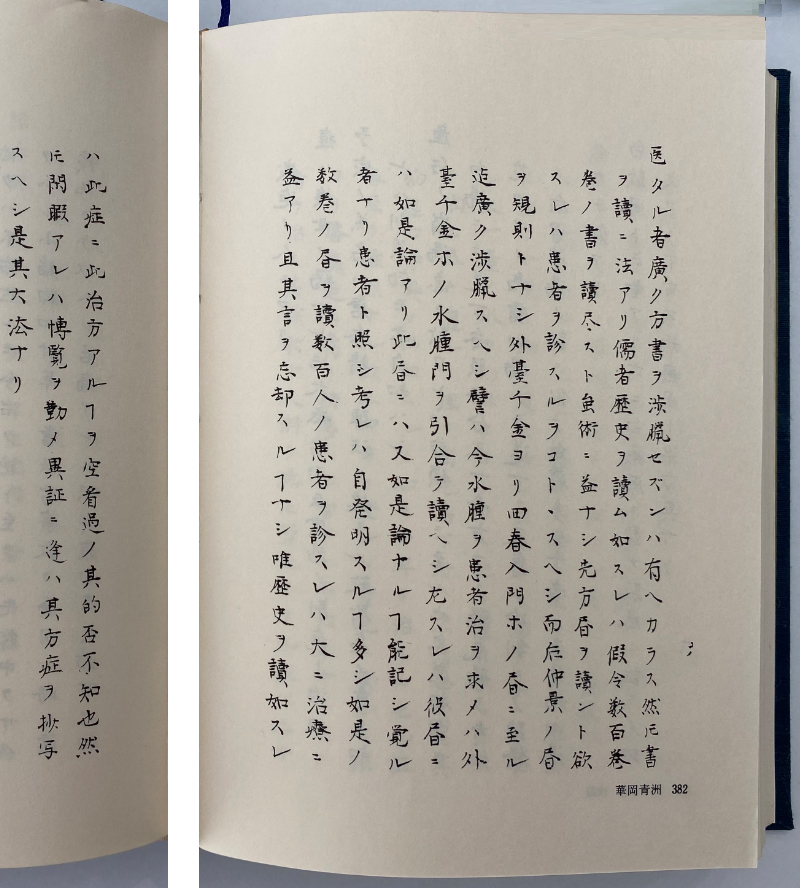 医タル者廣ク方書ヲ渉臘セズンハ有ヘカラス然𪜈書
ヲ讀ニ法アリ儒者歴史ヲ讀ム如スレハ假令数百巻
巻ノ書ヲ讀尽スト虽術ニ益ナシ先方書ヲ讀ント欲
スレハ患者ヲ診スルヲコトヽスヘシ而后仲景ノ書
ヲ規則トナシ外臺千金ヨリ回春入門ホノ書ニ至ル
迠廣ク渉臘スヘシ譬ハ今水腫ヲ患者治ヲ求メハ外
臺千金ホノ水腫門ヲ引合テ讀ヘシ左スレハ彼書ニ
ハ如是論アリ此書ニハ又如是論ナルヿ能記シ覚ル
者ナリ患者ト照シ考レハ自発明スルヿ多シ如是ノ
数巻ノ書ヲ讀数百人ノ患者ヲ診スレハ大ニ治療ニ
益アリ且其言ヲ忘却スルヿナシ唯歴史ヲ讀如スレ
ハ此症ニ此治方アルヿヲ空看過ノ其的否不知也然
𪜈閑暇アレハ博覧ヲ勤メ異証ニ逢ハ其方症ヲ抄写
スヘシ是其大法ナリ
華岡青洲 382